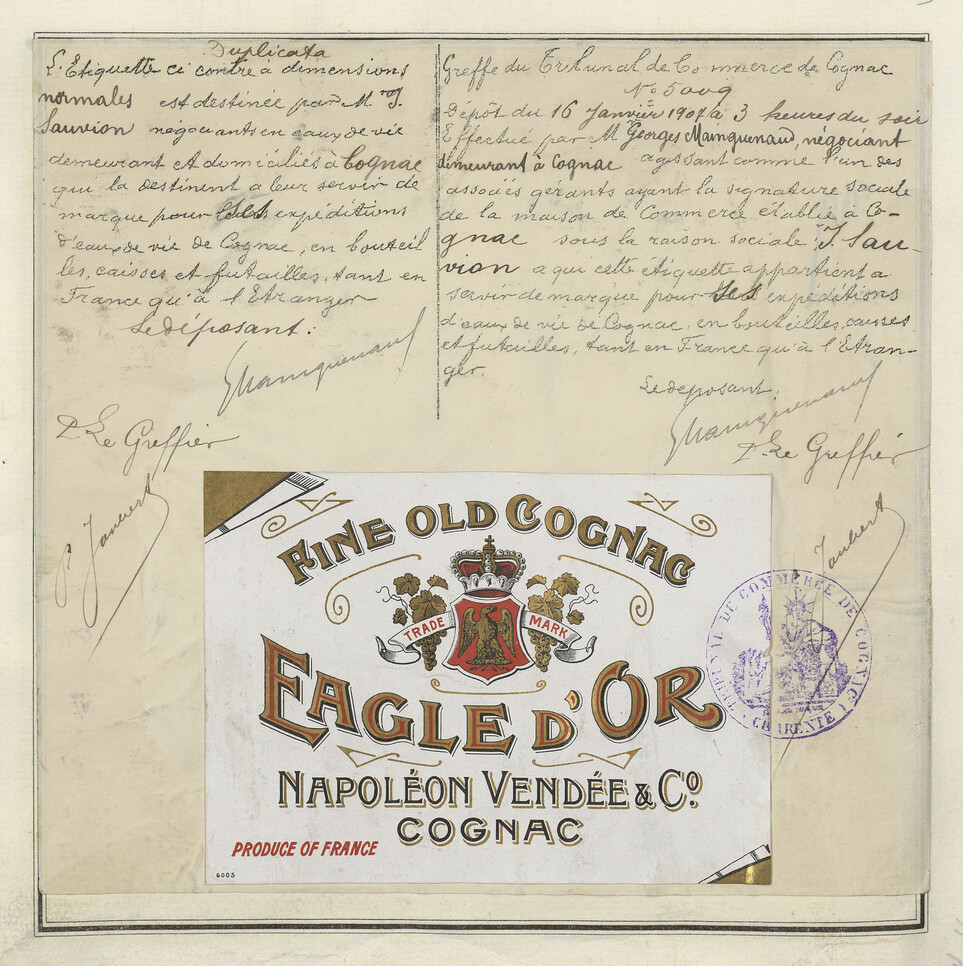 Duplicata
L'Etiquette ci contre à dimensions
normales est destinée par Mrs J.
Sauvion négociants en eaux de vie
demeurant et domiciliés à Cognac
qui la destinent a leur servir de
marque pour ses expéditions
d'eaux de vie de Cognac, en bouteil
les, caisses et futailles, tant en
France qu'à l'Etranger
Le déposant:
GMainguenaud
Pr Le Greffier
Jaubert
Greffe du Tribunal de Commerce de Cognac
No 5009
Dépôt du 16 Janvier 1907 à 3 heures du soir
Effectué par M Georges Mainguenaud, négociant
demeurant à Cognac agissant comme l'un des
associés gérants ayant la signature sociale
de la maison de Commerce établie à Co-
gnac sous la raison sociale J. Sau-
vion a qui cette étiquette appartient a
servir de marque pour ses expéditions
d'eaux de vie de Cognac, en bouteilles, caisses
et futailles, tant en France qu'à l'Etran-
ger.
Le deposant,
GMainguenaud
Pr Le Greffier
Jaubert
FINE OLD COGNAC
TRADE MARK
EAGLE D'OR
NAPOLÉON VENDÉE & Co.
COGNAC
PRODUCE OF FRANCE
6005
TRIBUNAL DE COMMERCE DE COGNAC
CHARENTE